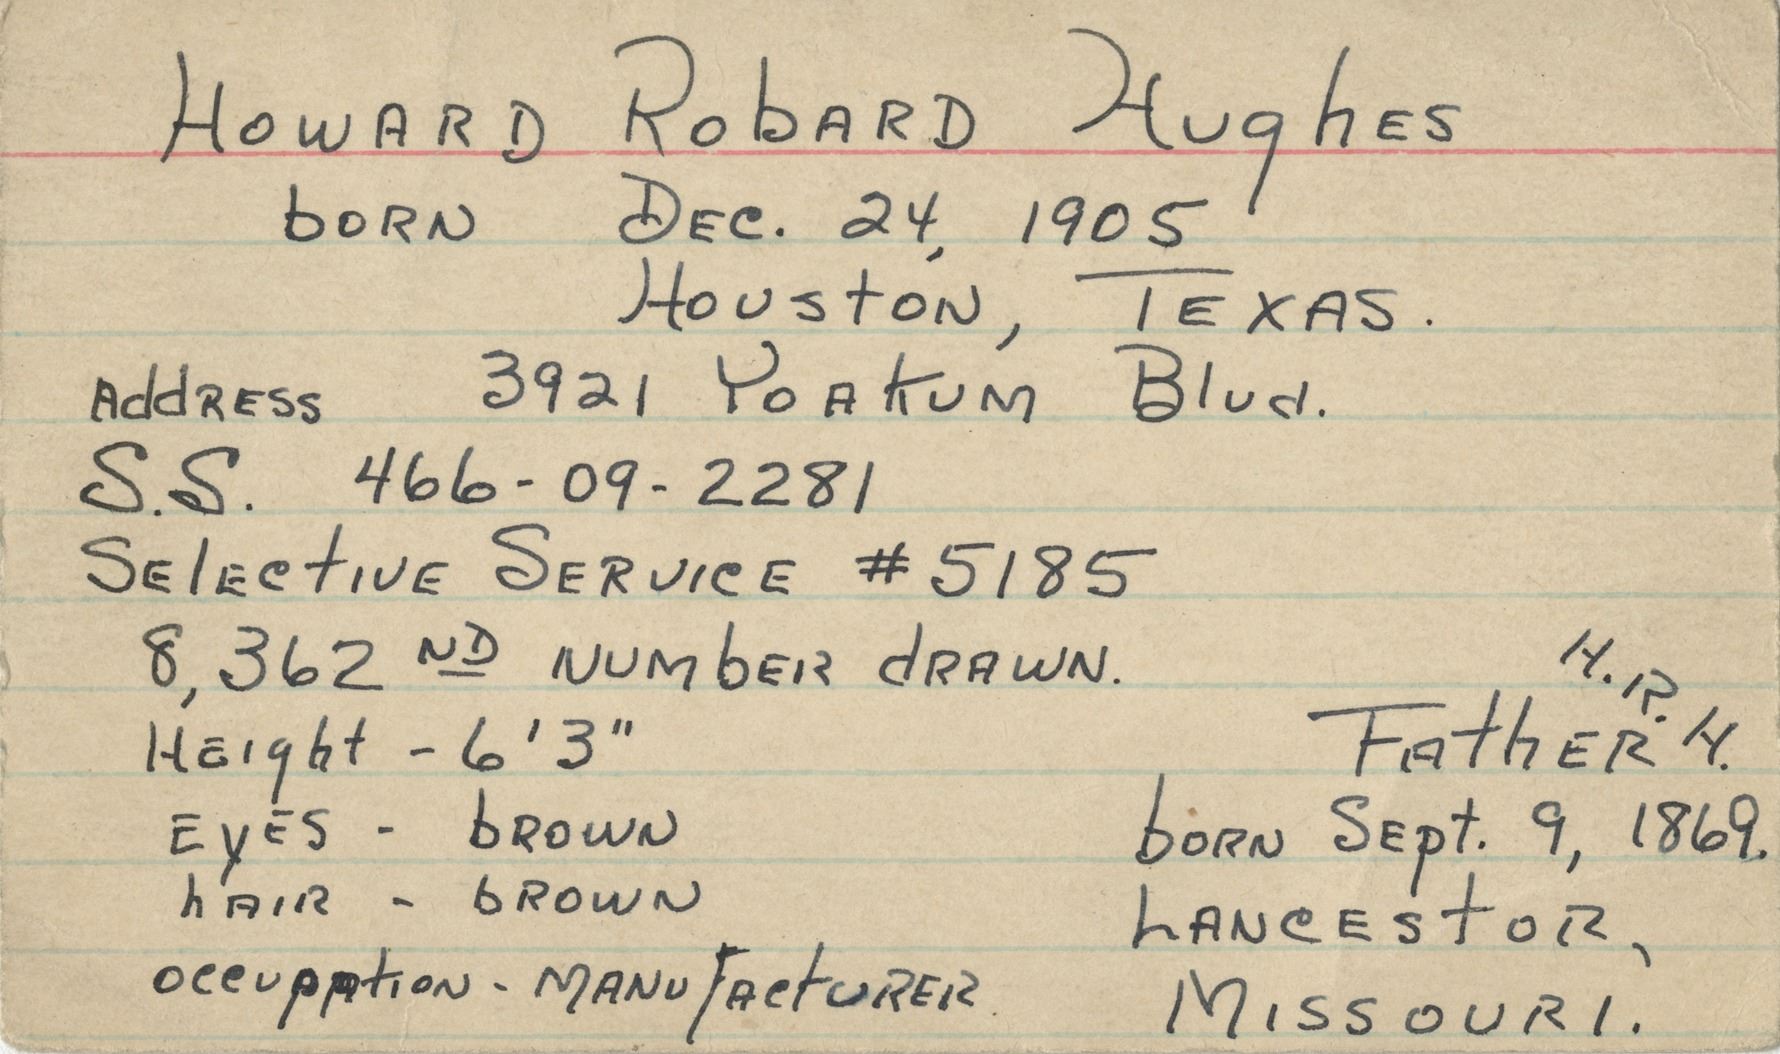 Howard Robard Hughes
born Dec. 24, 1905
Houston, Texas.
Address 3921 Yoakum Blvd.
S.S. 466-09-2281
Selective Service #5185
8,362 ND number drawn.
Height - 6'3"
Eyes - brown
hair - brown
occupation - Manufacturer
H.R.H.
Father
born Sept. 9, 1869.
Lancestor,
Missouri.